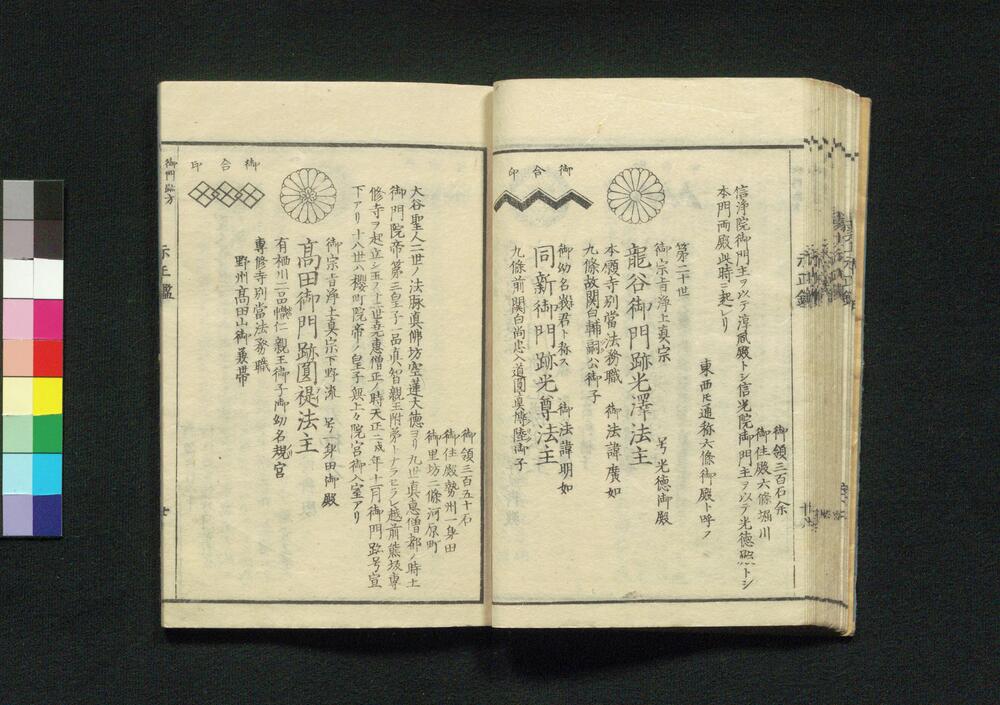 信浄院御門主ヲ以テ淳風殿トシ信光院御門主ヲ以テ光徳殿トシ
本門両殿此時ニ起レリ
御領三百石余
御住殿六條堀川
東西氏通称六條御殿ト呼フ
第二十世
御宗旨浄土真宗
号光徳御殿
龍谷御門跡光澤法主
本願寺別當法務職
御法諱廣如
九條故関白輔嗣公御子
御合印
御幼名峩君ト称ス
御法諱明如
同新御門跡光尊法主
九條前関白尚忠入道圓真博陸御子
大谷聖人二世ノ法脉真佛坊空蓮大徳ヨリ九世真恵僧都ノ時土
御門院帝第三皇子一品真智親王附弟トナラセラレ越前熊坂専
修寺ヲ起立シ玉ノ十二世堯恵僧正ノ時天正二戌年十二月御門跡号宣
下アリ十八世ハ櫻町院帝ノ皇子無上々院宮御入室アリ
御領三百五十石
御住殿勢州一身田
御里坊二條河原町
御合印
御宗旨浄土真宗下野流
号一身田御殿
高田御門跡圓禔法主
有栖川二品幟仁親王御子御幼名規宮
専修寺別當法務職
野州高田山御兼帯
御門跡方